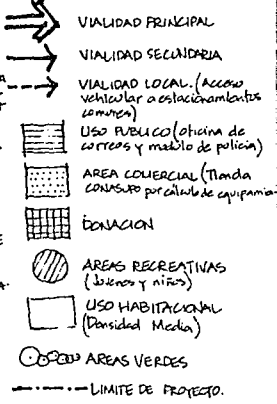 VIALIDAD PRINCIPAL
VIALIDAD SECUNDARIA
VIALIDAD LOCAL. (Acceso
vehicular a estacionamientos
comunes)
USO PUBLICO (oficina de
correos y modulo de policia)
AREA COMERCIAL (Tienda
CONASUPO por cálculo de equipamien
DONACION
AREAS RECREATIVAS
(Jovenes y niños)
USO HABITACIONAL
(Densidad Media)
AREAS VERDES
LIMITE DE PROYECTO.